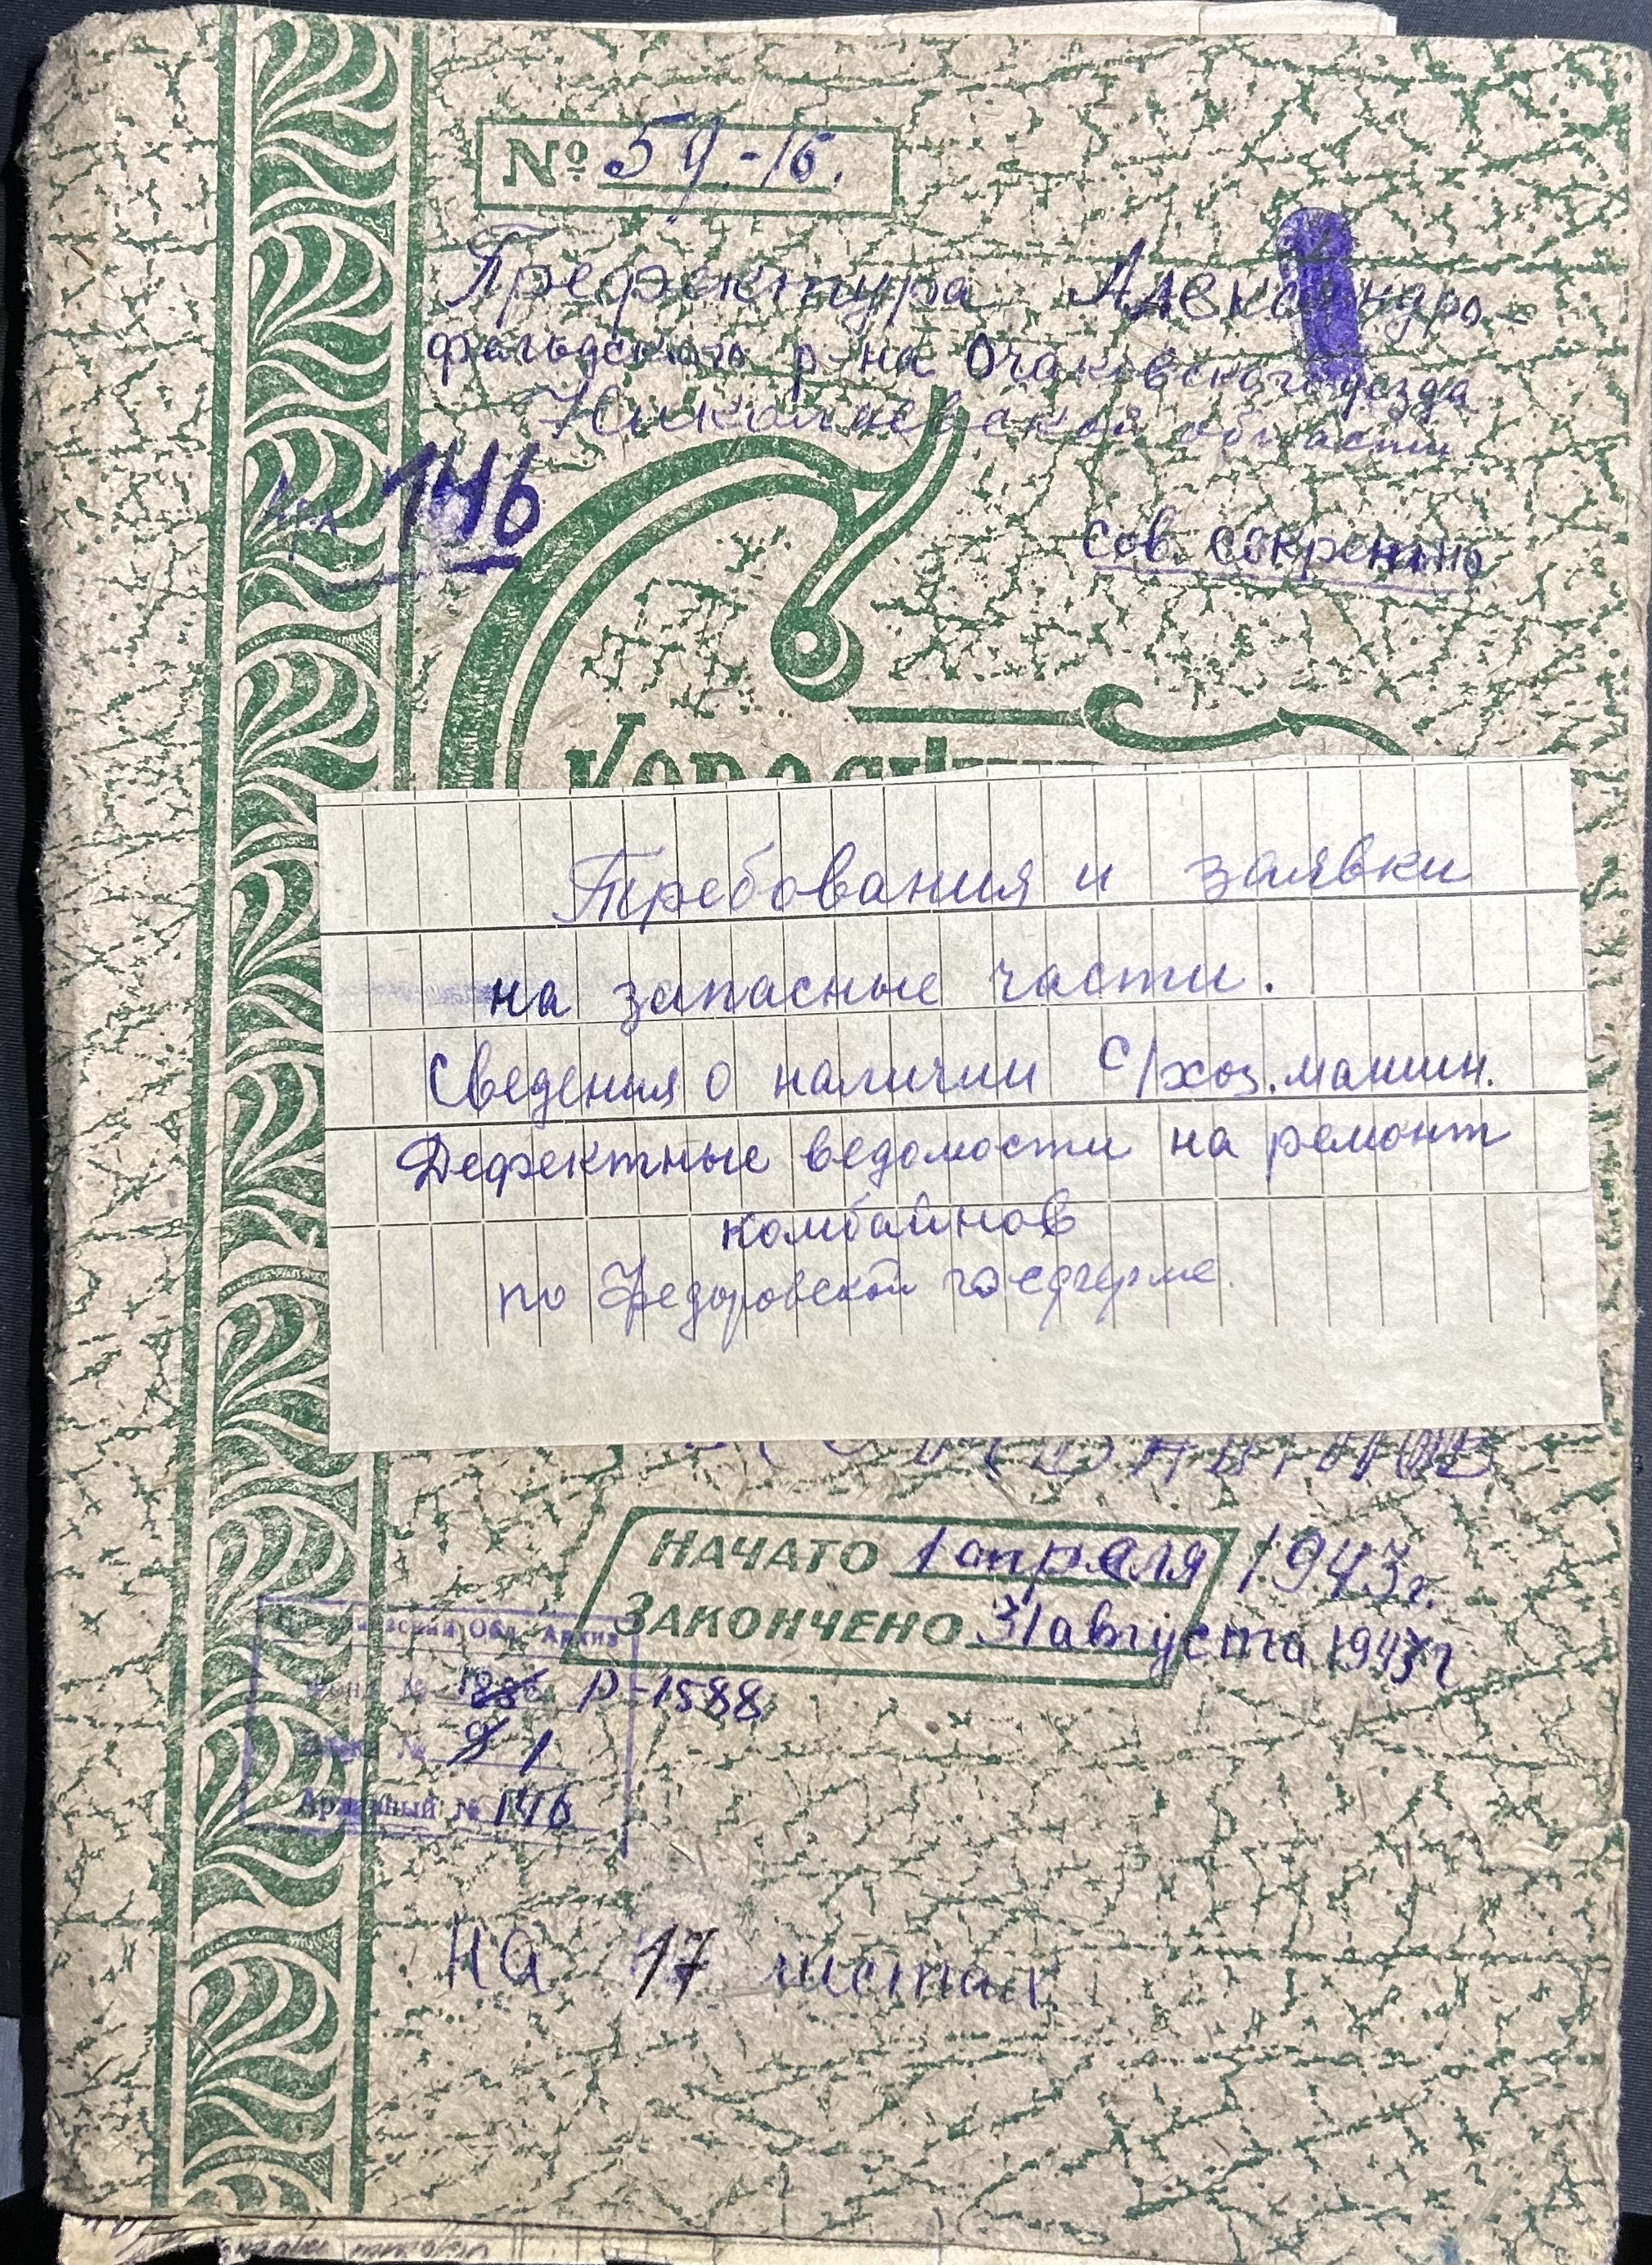 № 59-16.
Префектура Александро-
фельдского р-на Очаковского уезда
Николаевской области
146
сов. секретно
Требования и заявки
на запасные части.
Сведения о наличии с/хоз. машин.
Дефектные ведомости на ремонт
комбайнов
по Федоровской госферме.
НАЧАТО 1 апреля 1943 г.
ЗАКОНЧЕНО 31 августа 1943 г
Обл. Архив
№ Р-1588
№ 1
Архивный № 146
на 17 листах